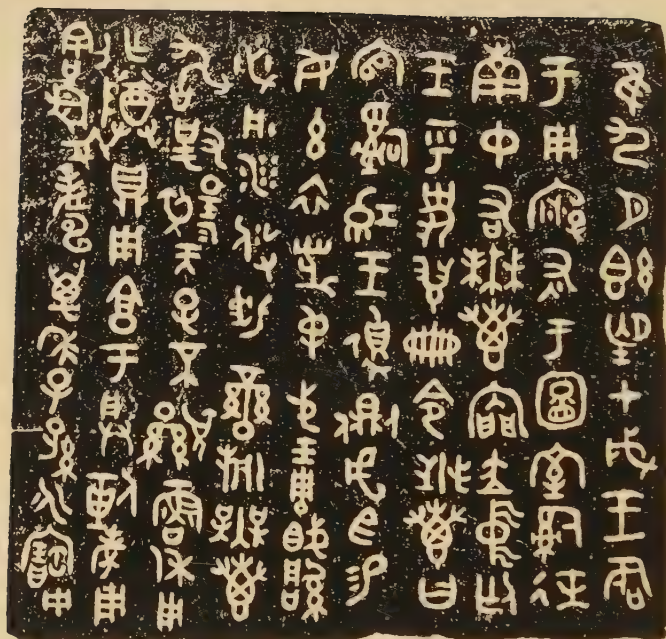 隹九月既望甲戌王各
于周廟于圖室司徒
南中右無叀內門立中廷
王乎史翏冊令無叀曰
官司紅王側虎臣易
女玄衣黹屯戈琱
必彤沙攸勒䜌旂無叀
敢對揚天子不顯魯休用
乍尊鼎用享于朕剌考用
割眉壽萬年子孫永寶用